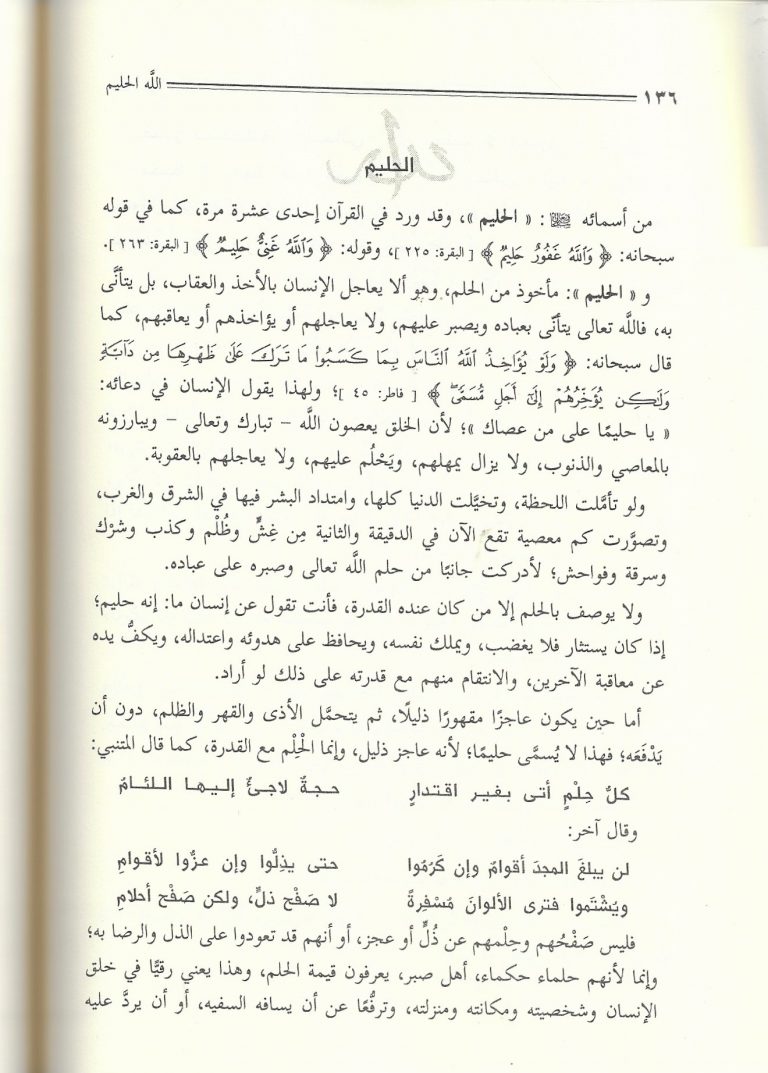 ١٣٦ اللَّه الحليم
الحليم
من أسمائه ﷻ : « الحليم »، وقد ورد في القرآن إحدى عشرة مرة، كما في قوله
سبحانه: ﴿ وَٱللَّهُ غَفُورٌ حَلِيمٌ ﴾ [ البقرة: ٢٢٥ ]، وقوله: ﴿ وَٱللَّهُ غَنِيٌّ حَلِيمٌ ﴾ [ البقرة: ٢٦٣ ].
و « الحليم »: مأخوذ من الحلم، وهو ألا يعاجل الإنسان بالأخذ والعقاب، بل يتأنَّى
به، فاللَّه تعالى يتأنّى بعباده ويصبر عليهم، ولا يعاجلهم أو يؤاخذهم أو يعاقبهم، كما
قال سبحانه: ﴿ وَلَوْ يُؤَاخِذُ ٱللَّهُ ٱلنَّاسَ بِمَا كَسَبُوا۟ مَا تَرَكَ عَلَىٰ ظَهْرِهَا مِن دَآبَّةٍ
وَلَٰكِن يُؤَخِّرُهُمْ إِلَىٰٓ أَجَلٍ مُّسَمًّى ﴾ [ فاطر: ٤٥ ]؛ ولهذا يقول الإنسان في دعائه:
« يا حليمًا على من عصاك »؛ لأن الخلق يعصون اللَّه - تبارك وتعالى - ويبارزونه
بالمعاصي والذنوب، ولا يزال يمهلهم، ويَحْلُم عليهم، ولا يعاجلهم بالعقوبة.
ولو تأمَّلت اللحظة، وتخيَّلت الدنيا كلها، وامتداد البشر فيها في الشرق والغرب،
وتصوَّرت كم معصية تقع الآن في الدقيقة والثانية مِن غِشٍّ وظُلْم وكذب وشرْك
وسرقة وفواحش؛ لأدركت جانبًا من حلم اللَّه تعالى وصبره على عباده.
ولا يوصف بالحلم إلا من كان عنده القدرة، فأنت تقول عن إنسان ما: إنه حليم؛
إذا كان يستثار فلا يغضب، ويملك نفسه، ويحافظ على هدوئه واعتداله، ويكفُّ يده
عن معاقبة الآخرين، والانتقام منهم مع قدرته على ذلك لو أراد.
أما حين يكون عاجزًا مقهورًا ذليلًا، ثم يتحمَّل الأذى والقهر والظلم، دون أن
يَدْفَعَه؛ فهذا لا يُسمَّى حليمًا؛ لأنه عاجز ذليل، وإنما الْحِلْم مع القدرة، كما قال المتنبي:
كلُّ حِلْمٍ أتى بغير اقتدارٍ حجةٌ لاجئٌ إليها اللئامُ
وقال آخر:
لن يبلغَ المجدَ أقوامٌ وإن كَرُمُوا حتى يذِلُّوا وإن عزُّوا لأقوامِ
ويَشْتَموا فترى الألوانَ مُسْفِرةً لا صَفْح ذلٍّ، ولكن صَفْح أحلامِ
فليس صَفْحُهم وحِلْمهم عن ذُلٍّ أو عجز، أو أنهم قد تعودوا على الذل والرضا به؛
وإنما لأنهم حلماء حكماء، أهل صبر، يعرفون قيمة الحلم، وهذا يعني رقيًّا في خلق
الإنسان وشخصيته ومكانته ومنزلته، وترفُّعًا عن أن يسافه السفيه، أو أن يردَّ عليه